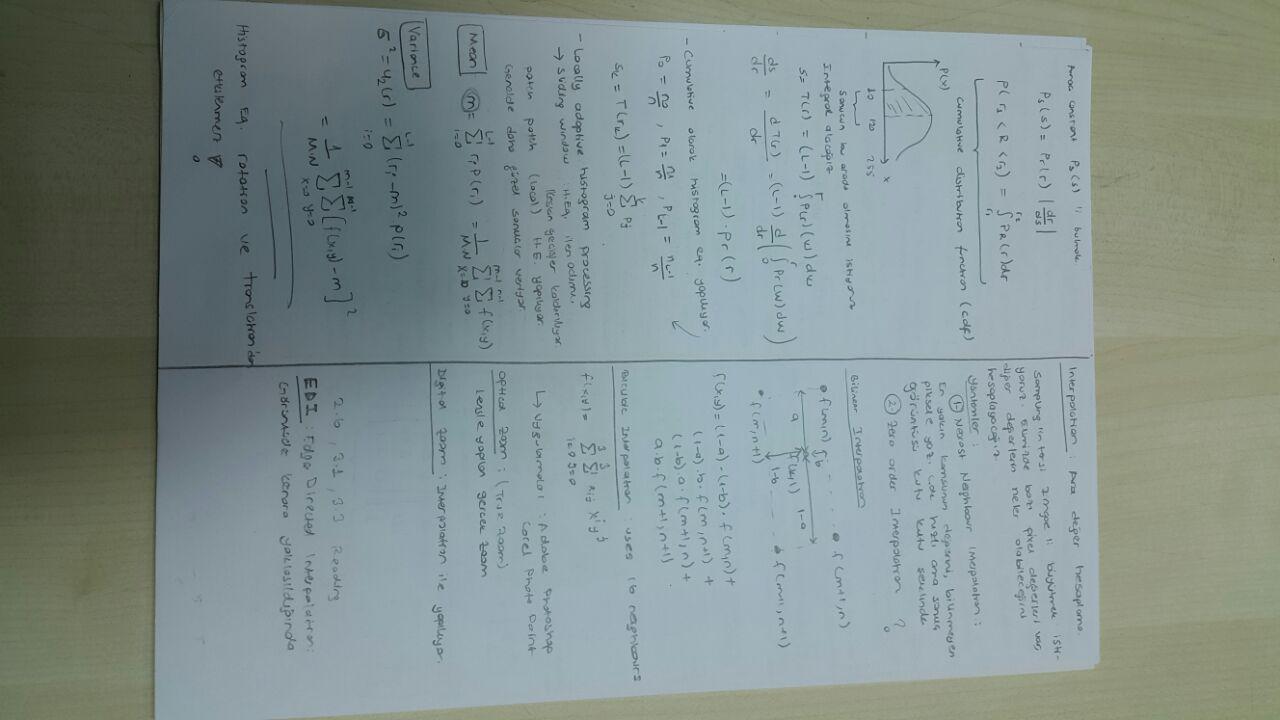 Amaç constant Ps(s) 'i bulmak.
Ps(s) = Pr(r) |dr/ds|
P(r1 < R < r2) = ∫ PR(r)dr
r2
r1
Cumulative distribution function (cdf)
P(x)
x
120 255
Sonucun bu arada olmasını istiyoruz
Integral alacağız
s = T(r) = (L-1) ∫ P(r)(w) dw
r
0
ds/dr = dT(r)/dr = (L-1) d/dr ( ∫ Pr(w) dw )
r
0
= (L-1) . Pr(r)
- Cumulative olarak histogram eq. yapılıyor.
P0 = n0/n , P1 = n1/n , PL-1 = nL-1/n
sk = T(rk) = (L-1) Σ Pj
k
j=0
- Locally adaptive histogram processing
→ sliding window H.Eq. ilen adımı.
Keskin geçişler kaldırılıyor.
patch patch (local) H.E. yapılıyor.
Genelde daha güzel sonuçlar veriyor.
Mean m = Σ ri P(ri) = 1/M.N Σ Σ f(x,y)
L-1 m-1 n-1
i=0 x=0 y=0
Variance
σ² = u2(r) = Σ (ri - m)² P(ri)
L-1
i=0
= 1/M.N Σ Σ [f(x,y) - m]²
m-1 N-1
x=0 y=0
Histogram Eq. rotation ve translation'dan
etkilenmez !
Interpolation : Ara değer hesaplama.
Sampling'in tersi image'i büyütmek isti-
yoruz. Elimizde bazı pixel değerleri var,
diğer değerlerin neler olabileceğini
hesaplayacağız.
Yöntemler :
1- Nearest Neighbour Interpolation :
En yakın komşunun değerini, bilinmeyen
piksele yaz. Çok hızlı ama sonuç
görüntüsü kutu kutu şeklinde
2. Zero order Interpolation ?
Bilinear Interpolation
f(m,n) b f(m+1,n)
a f(x,y) 1-a
1-b f(m+1,n+1)
f(m,n+1)
f(x,y) = (1-a) . (1-b) . f(m,n) +
(1-a) . b . f(m,n+1) +
(1-b) . a . f(m+1,n) +
a . b . f(m+1,n+1)
Bicubic Interpolation : uses 16 neighbours
f(x,y) = Σ Σ aij x^i y^j
3 3
i=0 j=0
↳ Uygulamaları : Adobe Photoshop
Corel Photo Paint
Optical Zoom : (True Zoom)
Lensle yapılan gerçek zoom
Digital zoom : Interpolation ile yapılıyor.
2.6 , 3.1 , 3.3 Reading
EDI : Edge Directed Interpolation:
Görüntüde kenara yaklaşıldığında